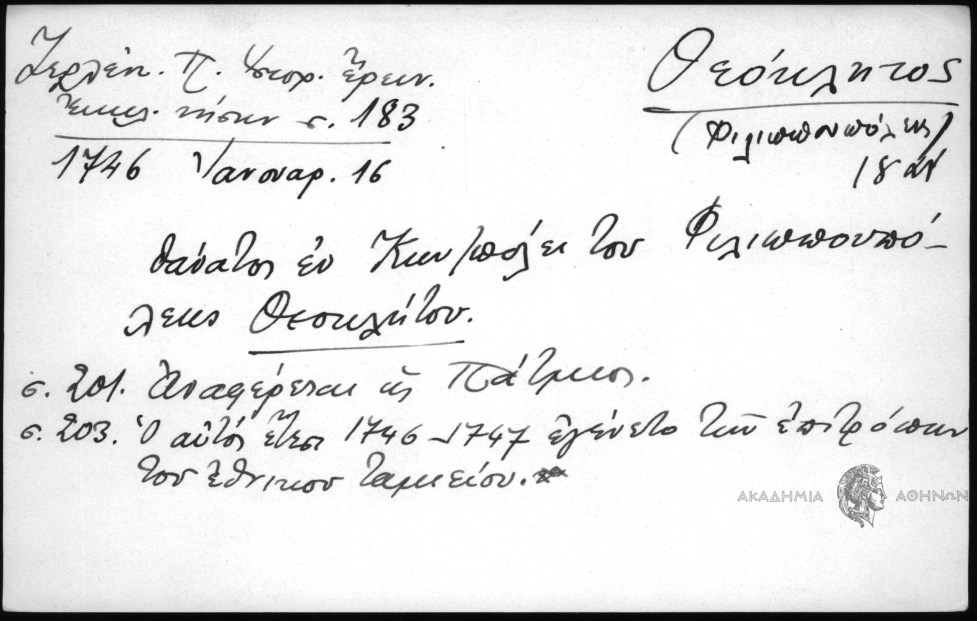 Ζερλέν. Π. Ἱστορ. Ἔρευν.
Ἐκκλ. νήσων σ. 183
1746 Ἰανουαρ. 16
Θεόκλητος
(Φιλιππουπόλεως)
18 αἰ
θάνατος ἐν Κων/πόλει του Φιλιππουπό-
λεως Θεοκλήτου.
σ. 201. Ἀναφέρεται ὡς Πάτμιος.
σ. 203. Ὁ αὐτός ἔτει 1746-1747 ἐγένετο τῶν ἐπιτρόπων
του ἐθνικου ταμείου.
ΑΚΑΔΗΜΙΑ ΑΘΗΝΩΝ